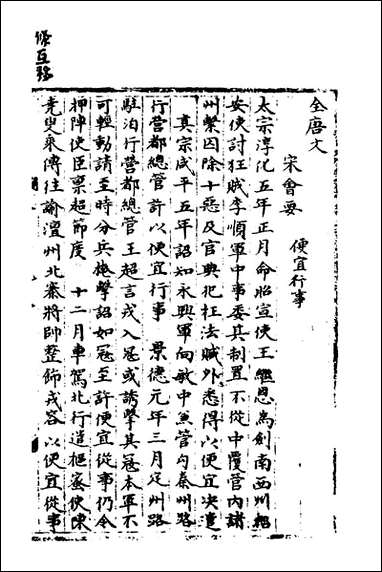 全唐文
宋會要
便宜行事
太宗淳化五年正月命昭宣使王繼恩為劍南西川招
安使討狂賊李順軍中事委其制置不從中覆管内諸
州繫囚除十惡及官典犯枉法贓外悉得以便宜决遣
真宗咸平五年詔知永興軍向敏中兼管勾秦州路
行營都總管許以便宜行事 景德元年三月定州路
駐泊行營都總管王超言戎入寇或誘擊其寇本軍不
可輕動請至時分兵掩擊詔如寇至許便宜從事仍令
押陣使臣稟超節度 十二月車駕北行遣樞密使陳
堯叟乘傳往諭澶州北寨將帥整飾戎容以便宜從事